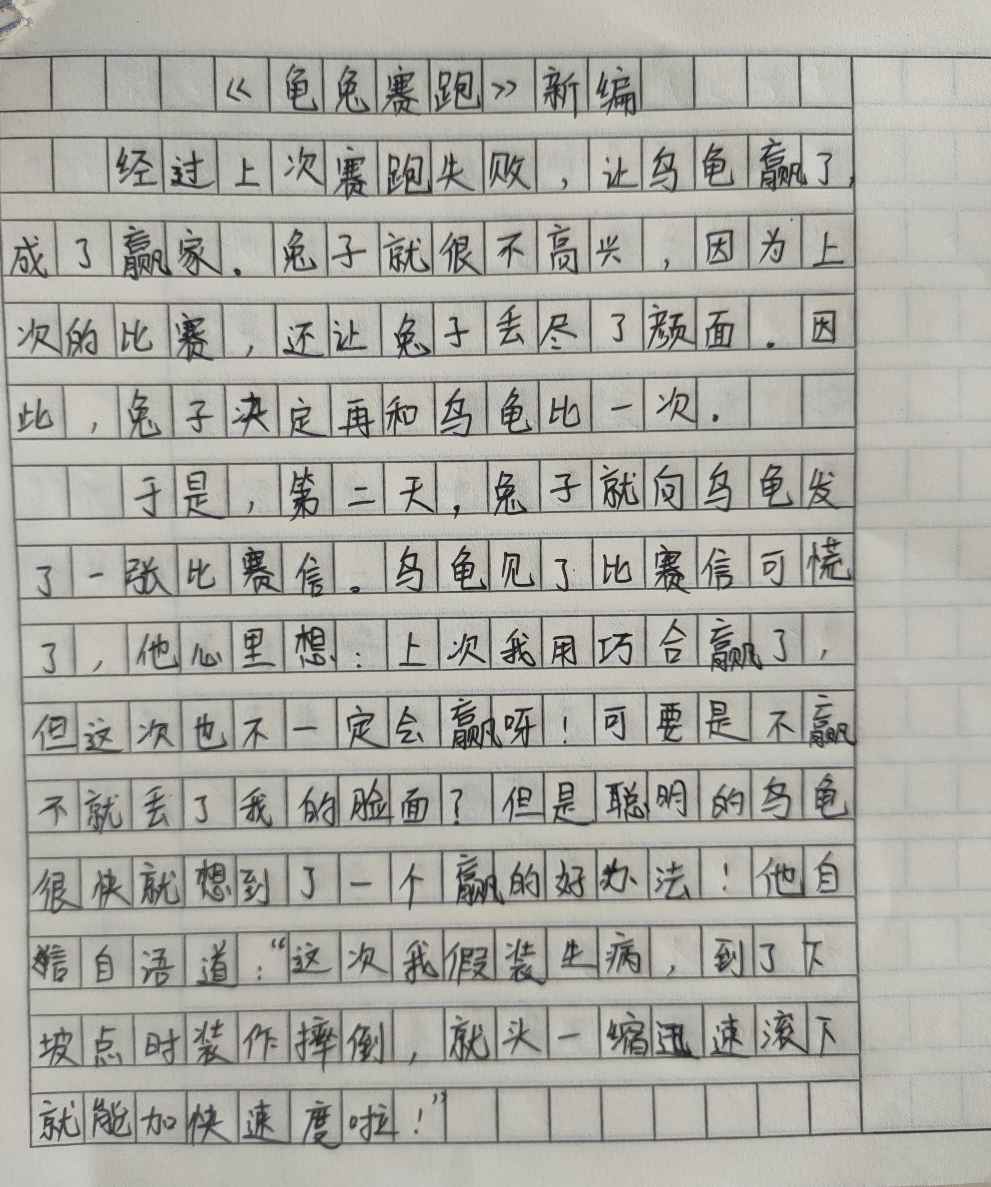 《龟兔赛跑》新编
经过上次赛跑失败，让乌龟赢了，
成了赢家．兔子就很不高兴，因为上
次的比赛，还让兔子丢尽了颜面．因
此，兔子决定再和乌龟比一次．
于是，第二天，兔子就向乌龟发
了一张比赛信。乌龟见了比赛信可慌
了，他心里想：上次我用巧合赢了，
但这次也不一定会赢呀！可要是不赢
不就丢了我的脸面？但是聪明的乌龟
很快就想到了一个赢的好办法！他自
信自语道：“这次我假装生病，到了下
坡点时装作摔倒，就头一缩迅速滚下
就能加快速度啦！”